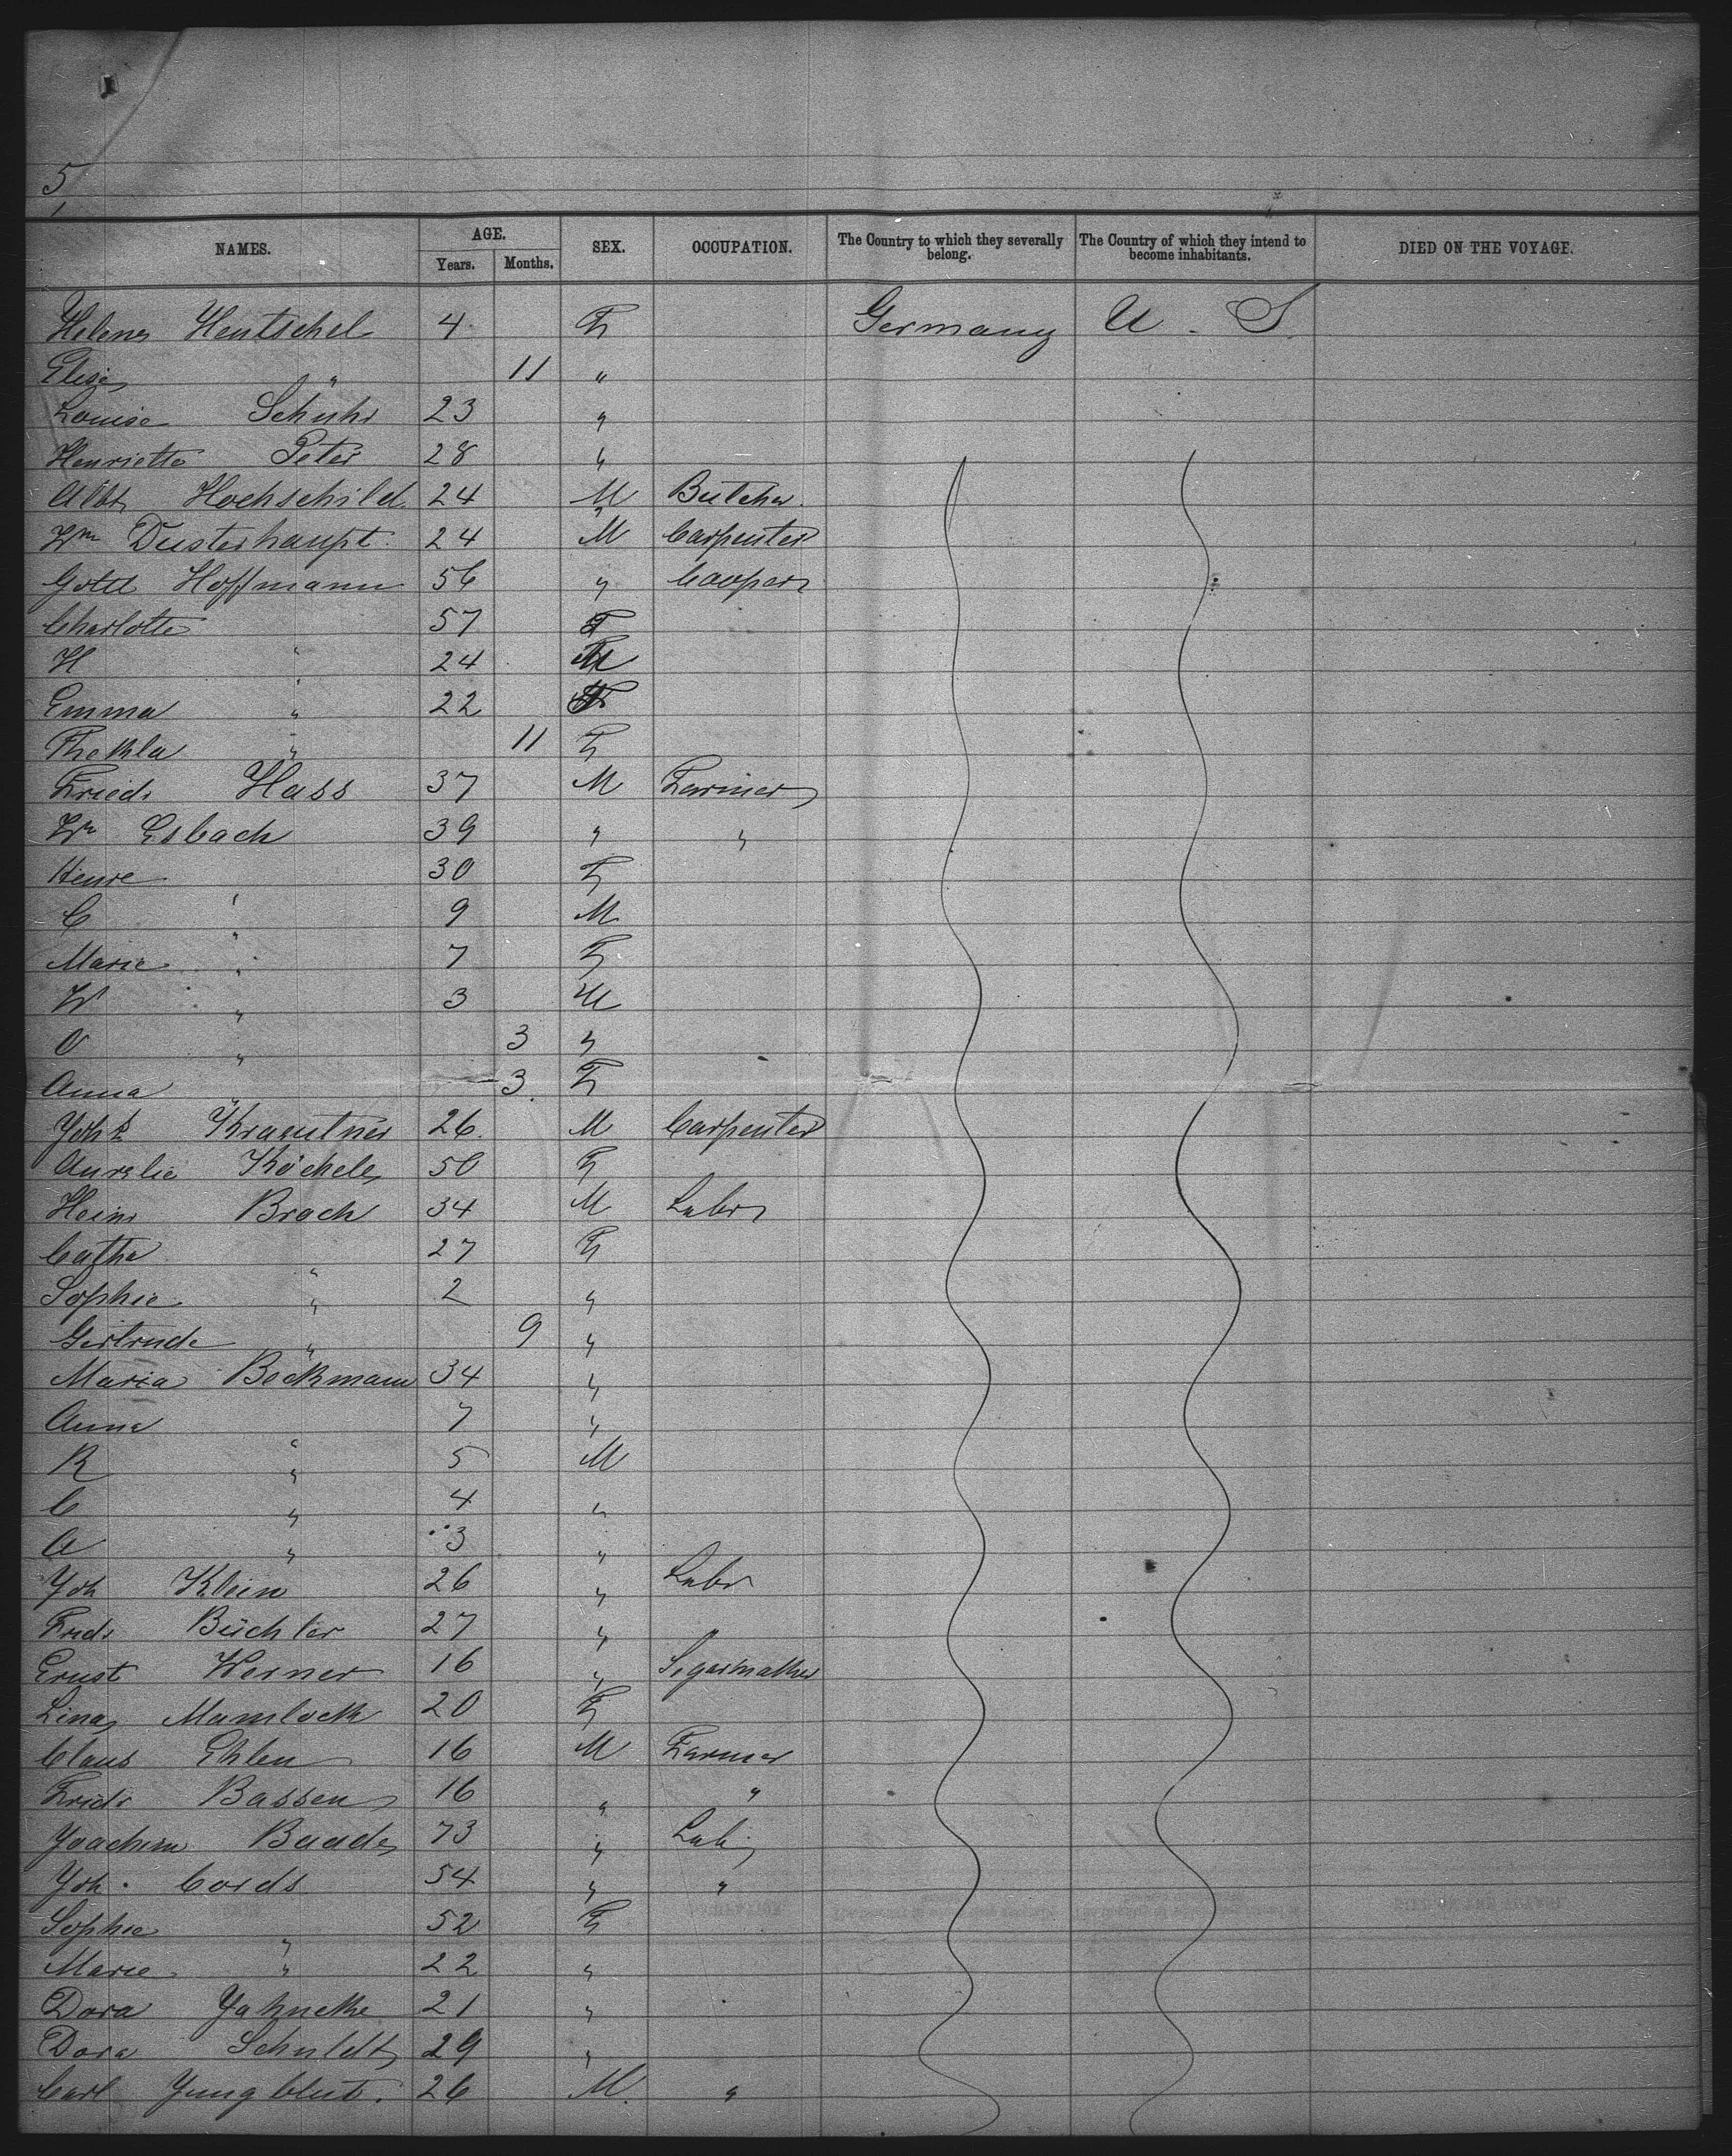 5
NAMES. AGE. SEX. OCCUPATION. The Country to which they severally belong. The Country of which they intend to become inhabitants. DIED ON THE VOYAGE.
Years. Months.
Helene Hentschel 4 F Germany U. S
Elise " 11 "
Louise Schuhr 23 "
Henriette Peter 28 "
Albt Hochschild 24 M Butcher.
Wm Dusterhaupt 24 M Carpenter
Gottl Hoffmann 56 " Cooper
Charlotte " 57 F
H " 24 M
Emma " 22 F
Thekla " 11 F
Friedr Hass 37 M Farmer
Wm Esbach 39 " "
Henre " 30 F
C " 9 M
Marie " 7 F
W " 3 M
O " 3 "
Anna " 3 F
Joh Krautner 26 M Carpenter
Aurelie Köchele 50 F
Heinr Brach 34 M Labr
Catha " 27 F
Sophie " 2 "
Gertrude " 9 "
Maria Bockmann 34 "
Anna " 7 "
R " 5 M
C " 4 "
A " 3 "
Joh Klein 26 " Labr
Fredr Büchler 27 "
Ernst Werner 16 " Segarmaker
Lina Mamlock 20 F
Claus Ehlen 16 M Farmer
Friedr Bassen 16 " "
Joachim Baade 73 " Lab
Joh. Cords 54 " "
Sophie " 52 F
Marie " 22 "
Dora Jahncke 21 "
Dora Schuldt 29 "
Carl Jungblut. 26 M. "